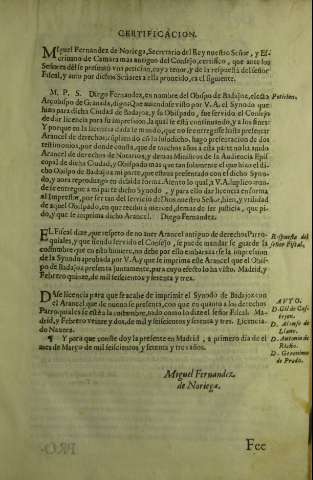 CERTIFICACION.
Miguel Fernandez de Noriega, Secretario del Rey nuestro Señor, y Es-
criuano de Camara mas antiguo del Consejo, certifico, que ante los
Señores dèl se presentò vna peticion, cuyo tenor, y de la respuesta del señor
Fiscal, y auto por dichos Señores a ella proueido, es el siguiente.
M. P. S. Diego Fernandez, en nombre del Obispo de Badajoz, electo
Peticion.
Arçobispo de Granada, digo: Que auiendose visto por V. A. el Synodo que
hizo para dicha Ciudad de Badajoz, y su Obispado, fue seruido el Consejo
de dar licencia para su impression, la qual se està continuando, y a los fines:
Y porque en la licencia se le mandò, que no se entregasse hasta presentar
Arancel de derechos,
testimonios, por donde consta, que de muchos años a esta parte no ha auido
Arancel de derechos de Notarios, y demas Ministros de la Audiencia Epis-
copal de dicha Ciudad, y Obispado mas que tan solamente el que hizo el di-
cho Obispo de Badajoz mi parte, que està presentado con el dicho Syno-
do, y aora reproduzgo en deuida forma. Atento lo qual, a V. A. suplico man-
de se entregue a mi parte dicho Synodo, y para ello dar licencia en forma
al Impressor, por ser tan del seruicio de Dios nuestro Señor, bien, y vtilidad
de aquel Obispado, en que recibirà merced, demas de ser justicia, que pi-
do, y que se imprima dicho Arancel. Diego Fernandez.
EL Fiscal dize, que respeto de no auer Arancel antiguo de derechos Parro-
Respuesta del
quiales, y que siendo seruido el Consejo, se puede mandar se guarde la
señor Fiscal.
costumbre que en esto huuiere, no debe por ello embaraçarse la impression
de la Synodo aprobada por V. A. y que se imprima esse Arancel que el Obis-
po de Badajoz presenta juntamente, para cuyo efecto lo ha visto. Madrid, y
Febrero quinze, de mil seiscientos y setenta y tres.
DAse licencia para que se acabe de imprimir el Synodo de Badajoz con
AVTO.
el Arancel que de nueuo se presenta, con que en quanto a los derechos
D. Gil de Cas-
tejon.
Parroquiales se estè a la costumbre, todo como lo dize el señor Fiscal. Ma-
D. Alonso de
Llano.
drid, y Febrero veinte y dos, de mil y seiscientos y setenta y tres. Licencia-
D. Antonio de
do Nauora.
Riaño.
¶ Y para que conste doy la presente en Madrid, a primero dia de el
D. Geronimo
de Prado.
mes de Março de mil seiscientos y setenta y tres años.
Miguel Fernandez
de Noriega.
Fee